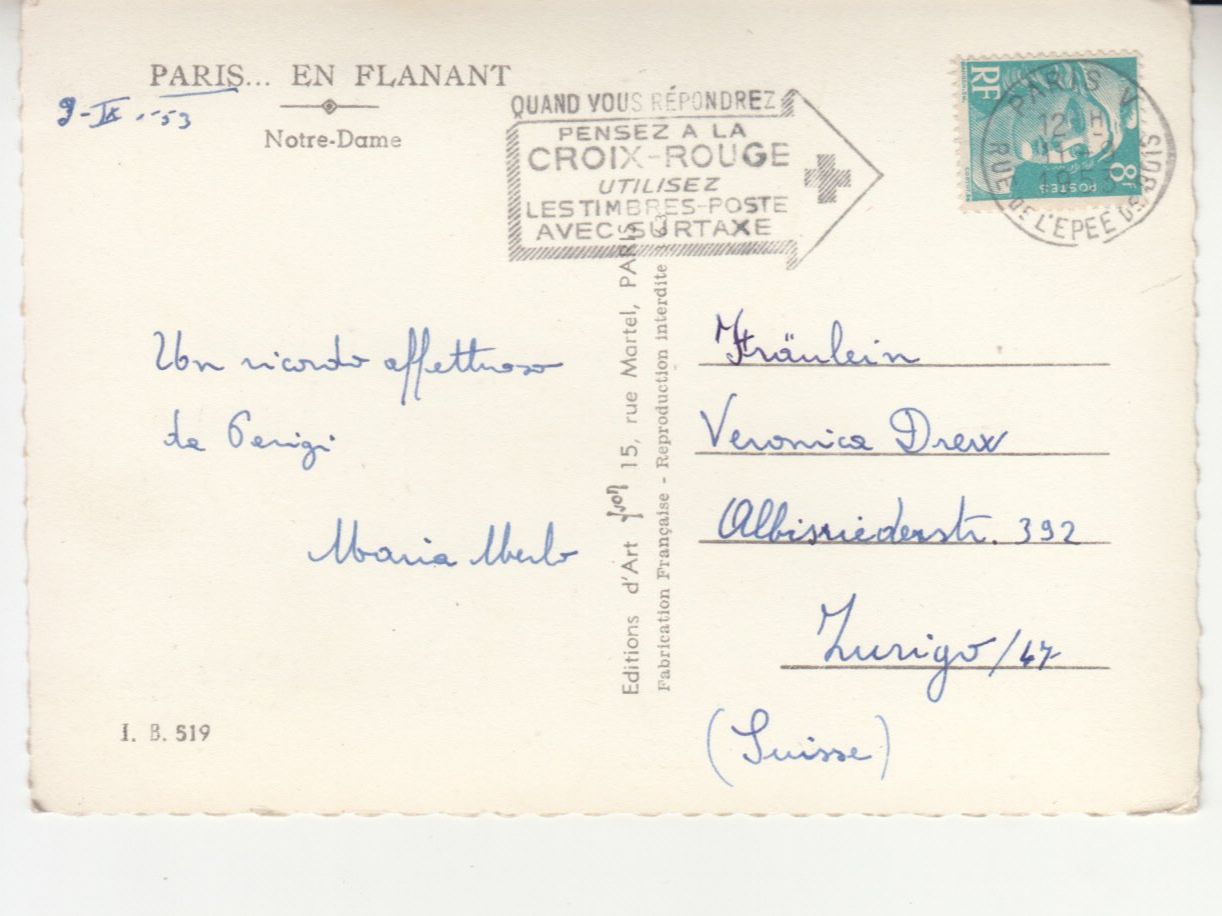 PARIS... EN FLANANT
9-IX.-53
Notre-Dame
QUAND VOUS RÉPONDREZ
PENSEZ A LA
CROIX-ROUGE
UTILISEZ
LES TIMBRES-POSTE
AVEC SURTAXE
RF
8F
POSTES
PARIS V
12 H
1953
RUE DE L'EPEE DE BOIS
Un ricordo affettuoso
da Parigi
Maria Merlo
Editions d'Art Yvon 15, rue Martel, PARIS
Fabrication Française - Reproduction interdite
Fräulein
Veronica Drex
Albisriederstr. 392
Zurigo/47
(Suisse)
I. B. 519